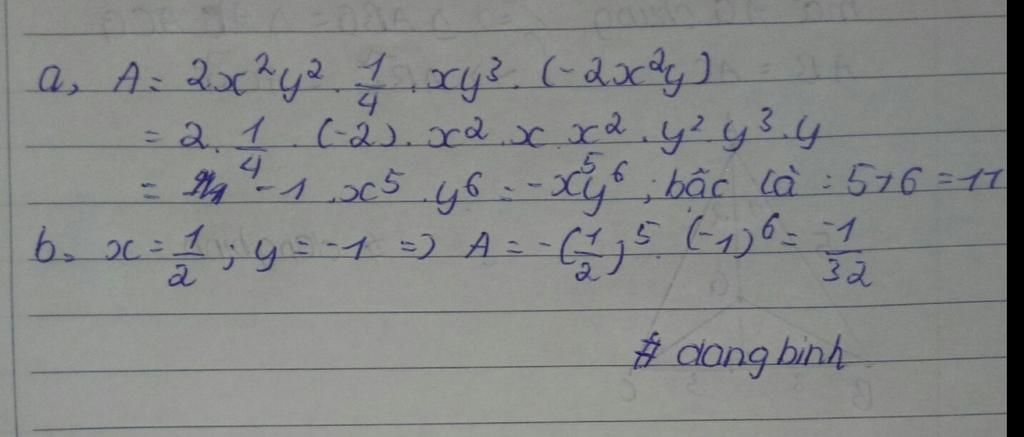 a, A = 2x²y² . 1/4 . xy³ . (-2x²y)
= 2 . 1/4 . (-2) . x² . x . x² . y² . y³ . y
= -1 . x⁵ . y⁶ = -x⁵y⁶ ; bậc là : 5+6 = 11
b, x = 1/2 ; y = -1 => A = -(1/2)⁵ . (-1)⁶ = -1/32
# dangbinh